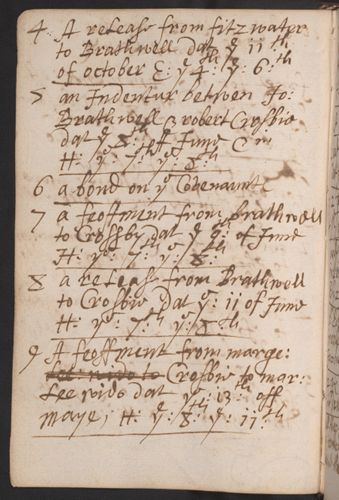 4. A releass from fitzwater
to Brathwell dat ye 11th
of october E: ye 4th: ye: 6th.
5 an Indentur betwen Jo:
Brathwell & robert Crosbie
dat ye 8th off June
H: ye: 7th: ye: 8th
6 a bond on ye Covenaunte
7 a feoffment from brathwell
to Crossby dat ye 8th of June
H: ye: 7: ye: 8:
8 a releass from Brathwell
to Crosbie dat ye: 11 of June
H: ye: 7: ye: 8th
9 A feoffment from marge:
Crosbie to mar:
dat ye: 13: off
maye; H: ye: 8: ye: 11th